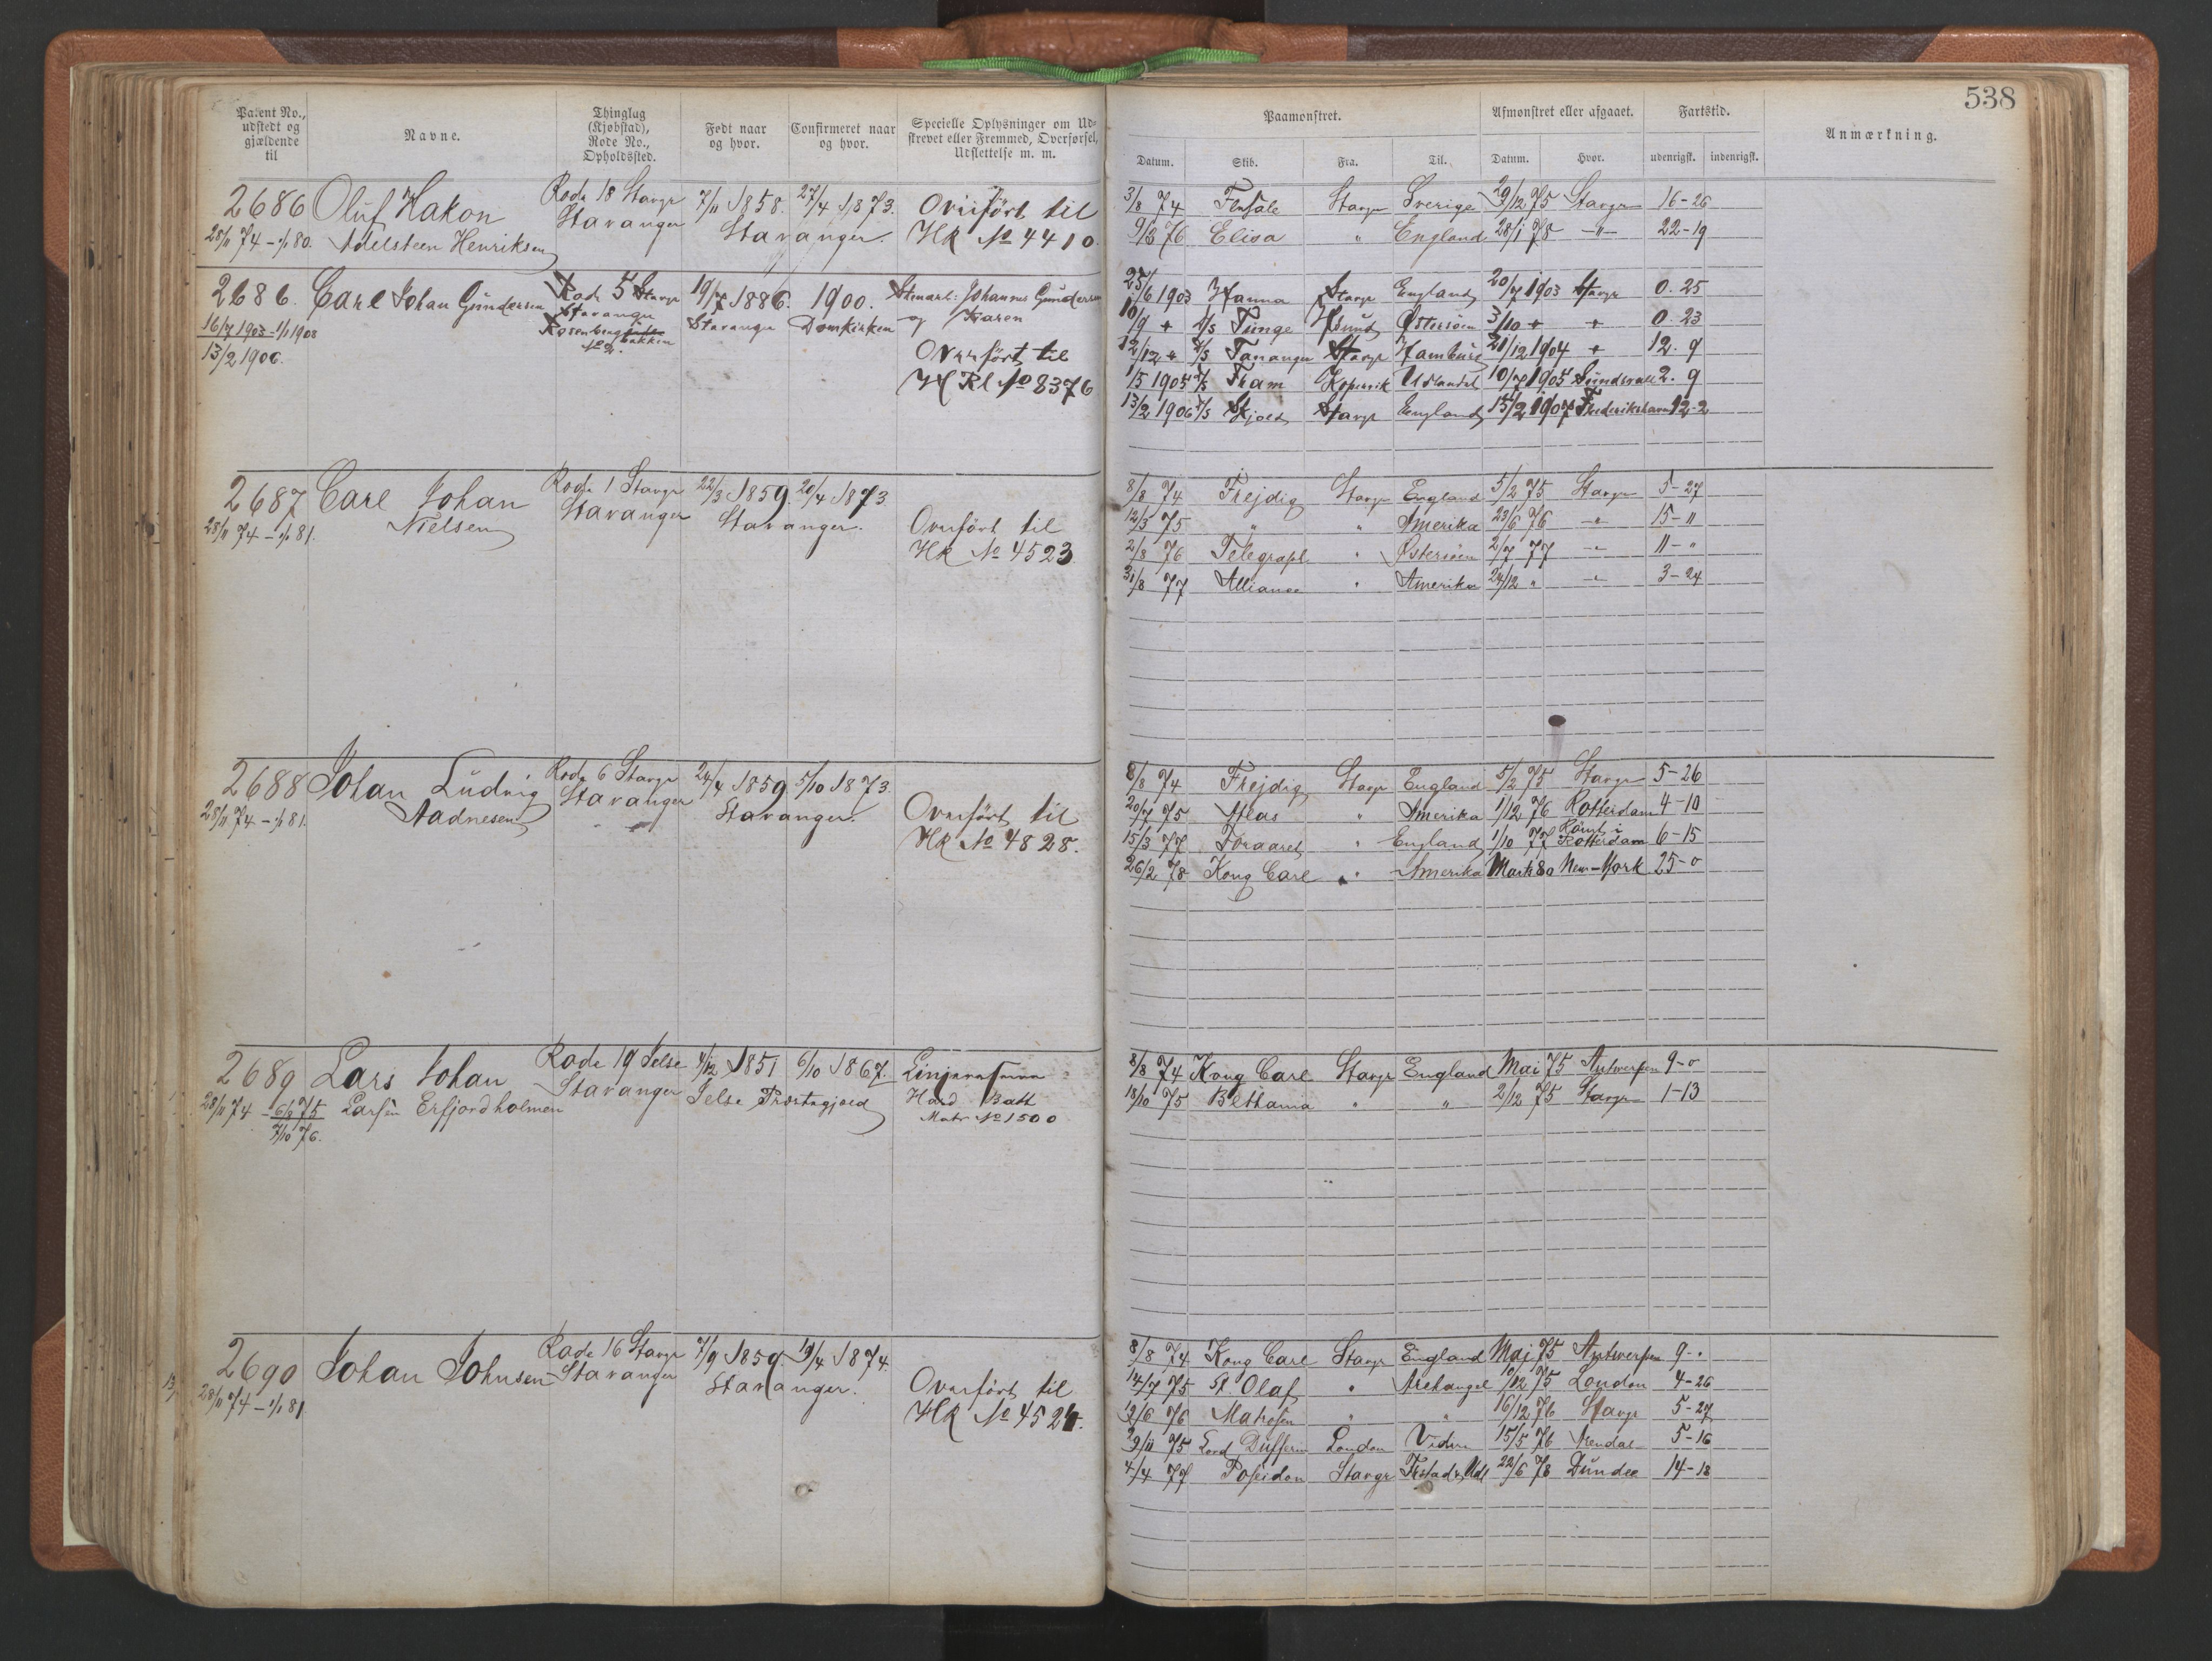 538
Patent No., udstedt og gjældende til
Navne.
Thinglag (Kjøbstad), Rode No., Opholdssted.
Født naar og hvor.
Confirmeret naar og hvor.
Specielle Oplysninger om Udskrevet eller Fremmed, Overførsel, Udslettelse m. m.
Paamønstret.
Afmønstret eller afgaaet.
Fartstid.
Anmærkning.
Datum. Skib. Fra. Til. Datum. Hvor. udenrigsk. indenrigsk.
2686 Oluf Hakon Rode 18 Stavgr 7/11 1858. 27/4 1873. Overført til
28/11 74 – 1/1 80. Adelsteen Henriksen Stavanger Stavanger. HR No 4410.
3/8 74 Stavgr Sverige 29/12 75 Stavgr 16-26
9/3 76 Elisa " England 28/1 78 –"– 22-19
2686. Carl Johan Gundersen Rode 5 Stavgr 19/7 1886. 1900. Johannes Gundersen
16/7 1903 – 1/1 1908 Stavanger Stavanger Domkirken og Karen
13/2 1906. Rosenberg bakken
Overført til
H Rl No 8376
25/6 1903 Hanna Stavgr England 20/7 1903 Stavgr 0. 25
10/9 " D/S Tunge Østersøen 3/10 " " 0. 23
12/12 " D/S Tananger Stavgr Hamburg 21/12 1904 " 12. 9
1/5 1905 D/S Fram Kopervik Udlandet 10/7 1905 Sundsvall 2. 9
13/2 1906 D/S Skjold Stavgr England 15/2 1907 Frederikshavn 12-2
2687 Carl Johan Rode 1 Stavgr 22/3 1859. 20/4 1873
28/11 74 – 1/1 81. Nielsen Stavanger Stavanger. Overført til
HR No 4523
8/8 74 Frejdig Stavgr England 5/2 75 Stavgr 5-27
12/3 75 " " Amerika 23/6 76 –"– 15-11
2/8 76 Telegraph " Østersøen 2/7 77 –"– 11-"
31/8 77 Alliance " Amerika 24/12 " –"– 3-24
2688 Johan Ludvig Rode 6 Stavgr 24/4 1859 5/10 1873.
28/11 74 – 1/1 81. Aadnesen Stavanger Stavanger. Overført til
HR No 4828.
8/8 74 Frejdig Stavgr England 5/2 75 Stavgr 5-26
20/7 75 Atlas " Amerika 1/12 76 Rotterdam 4-10
15/3 77 Foraaret " England 1/10 77 Rømt i Rotterdam 6-15
26/2 78 Kong Carl " Amerika Marts 80 New-York 25-0
2689 Lars Johan Rode 19 Jelse 4/12 1851 6/10 1867.
28/11 74 – 6/8 75 Larsen Erfjordholmen Stavanger Jelse Præstegjæld Hard Batt
7/10 76. Matr No 1500
8/8 74 Kong Carl Stavgr England Mai 75 Antwerpen 9-0
18/10 75 Bethania " " 2/12 75 Stavgr 1-13
2690 Johan Johnsen Rode 16 Stavgr 7/9 1859. 19/4 1874.
28/11 74 – 1/1 81 Stavanger Stavanger. Overført til
HR No 4524.
8/8 74 Kong Carl Stavgr England Mai 75 Antwerpen 9-"
14/7 75 St. Olaf " Archangel 10/12 75 London 4-26
12/6 76 Matrosen " " 16/12 76 Stavgr 5-27
29/11 75 Lord Dufferin London Viden 15/5 76 Arendal 5-16
4/4 77 Poseidon Stavgr Frstad & Udl 22/6 78 Dundee 14-18